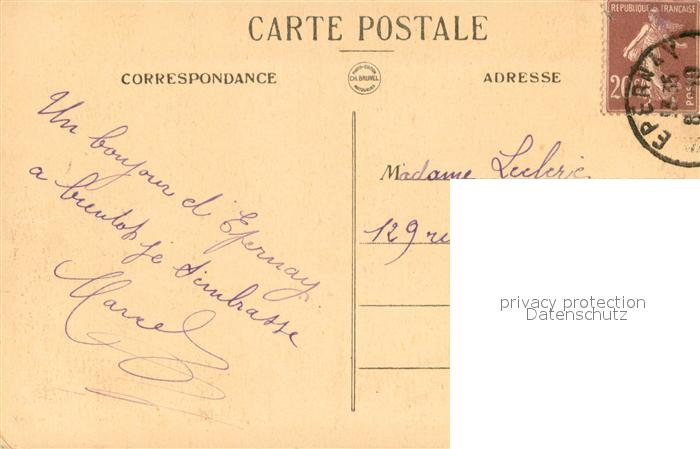 CARTE POSTALE
CORRESPONDANCE
ADRESSE
CH. BRUNEL
REPUBLIQUE FRANÇAISE
20
POSTES
EPERNAY
Un bonjour d'Epernay
a bientot je t'embrasse
Marcel
Madame Leclerc
129 ru
privacy protection
Datenschutz